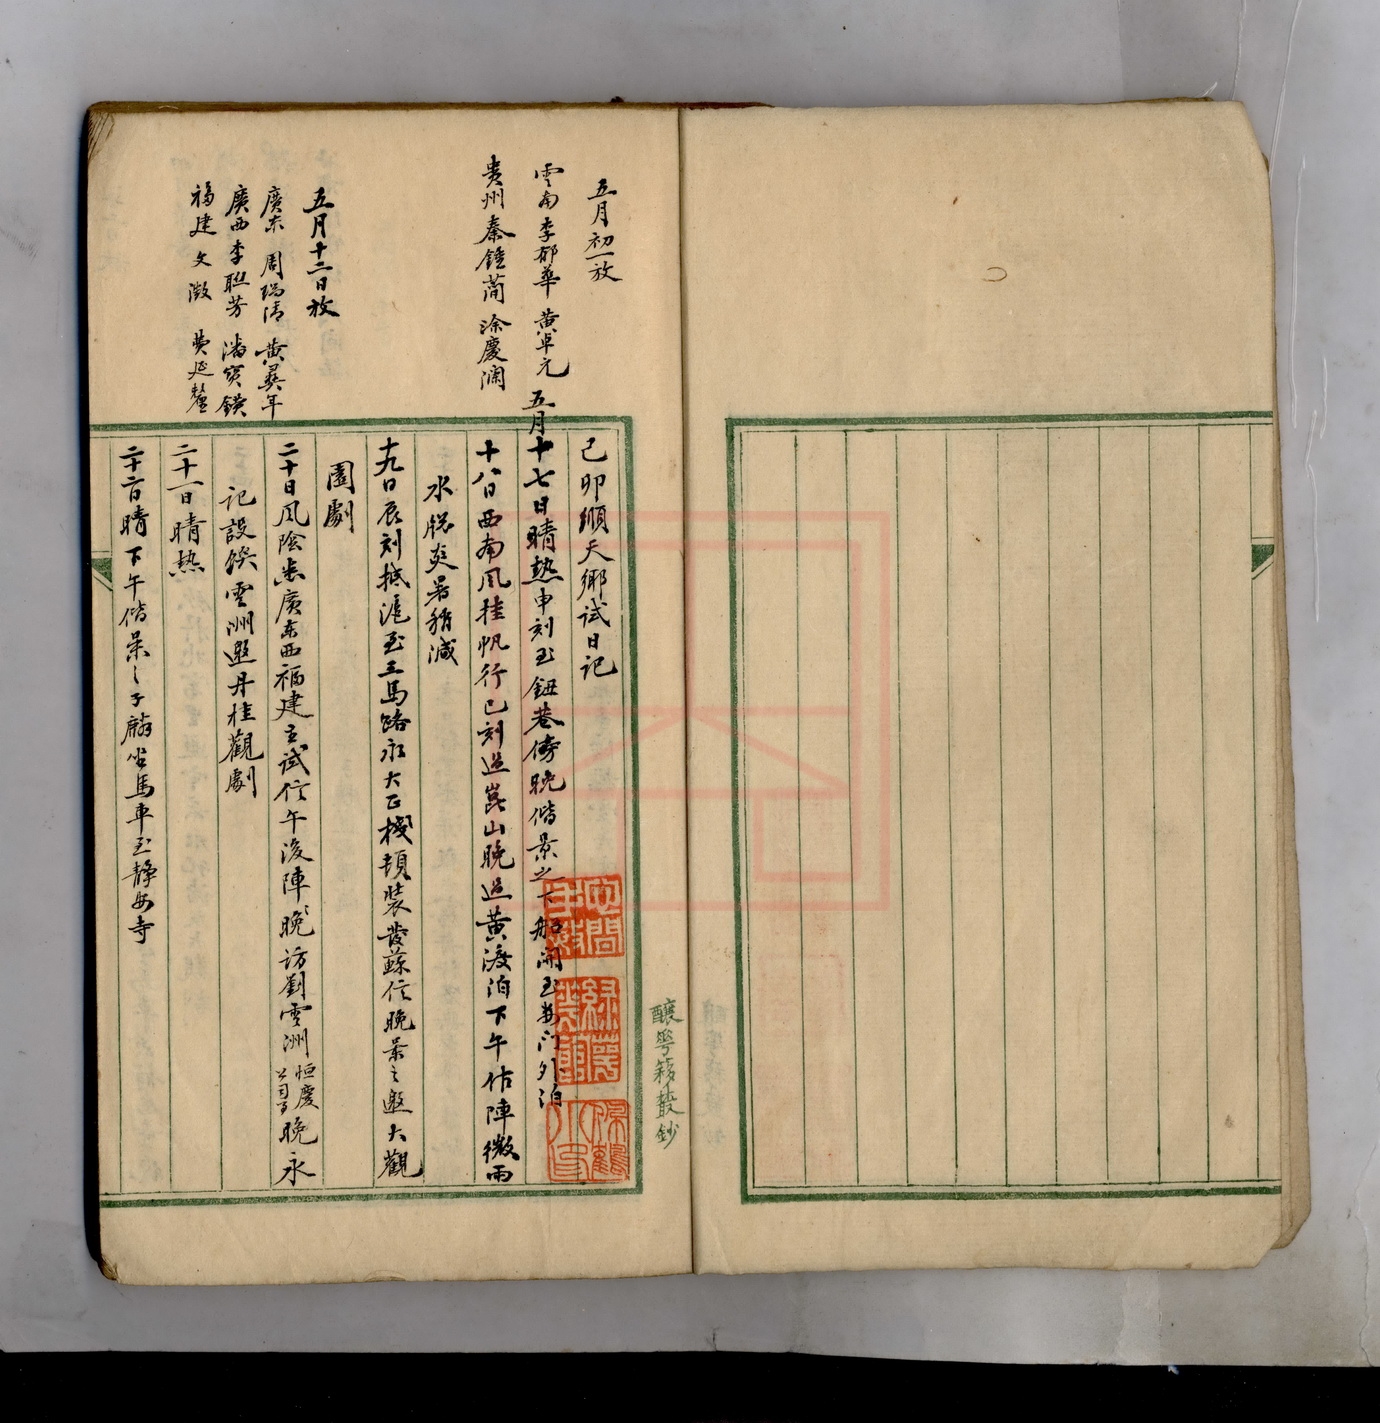 五月初一放
雲南 李郁華 黃卓元
貴州 秦鍾簡 涂慶瀾
五月十二日放
廣東 周瑞清 黃彝年
廣西 李聯芳 潘寶鐄
福建 文澂 費延釐
己卯順天鄉試日記
五月十七日晴熱申刻至鈕巷傍晚偕景之下船開至婁门外泊
十八日西南風挂帆行巳刻過崑山晚過黃渡泊下午佑陣微雨
水膨炎暑稍減
十九日辰刻抵滬至三馬路永大正棧頓裝發蘇信晚景之邀大觀
園劇
二十日風陰悉廣東西福建主試信午後陣晚訪劉雲洲恒慶公司號晚永
記設饌雲洲邀丹桂觀劇
二十一日晴熱
二十二日晴下午偕景之子麟坐馬車至靜安寺
醲㝵簃叢鈔